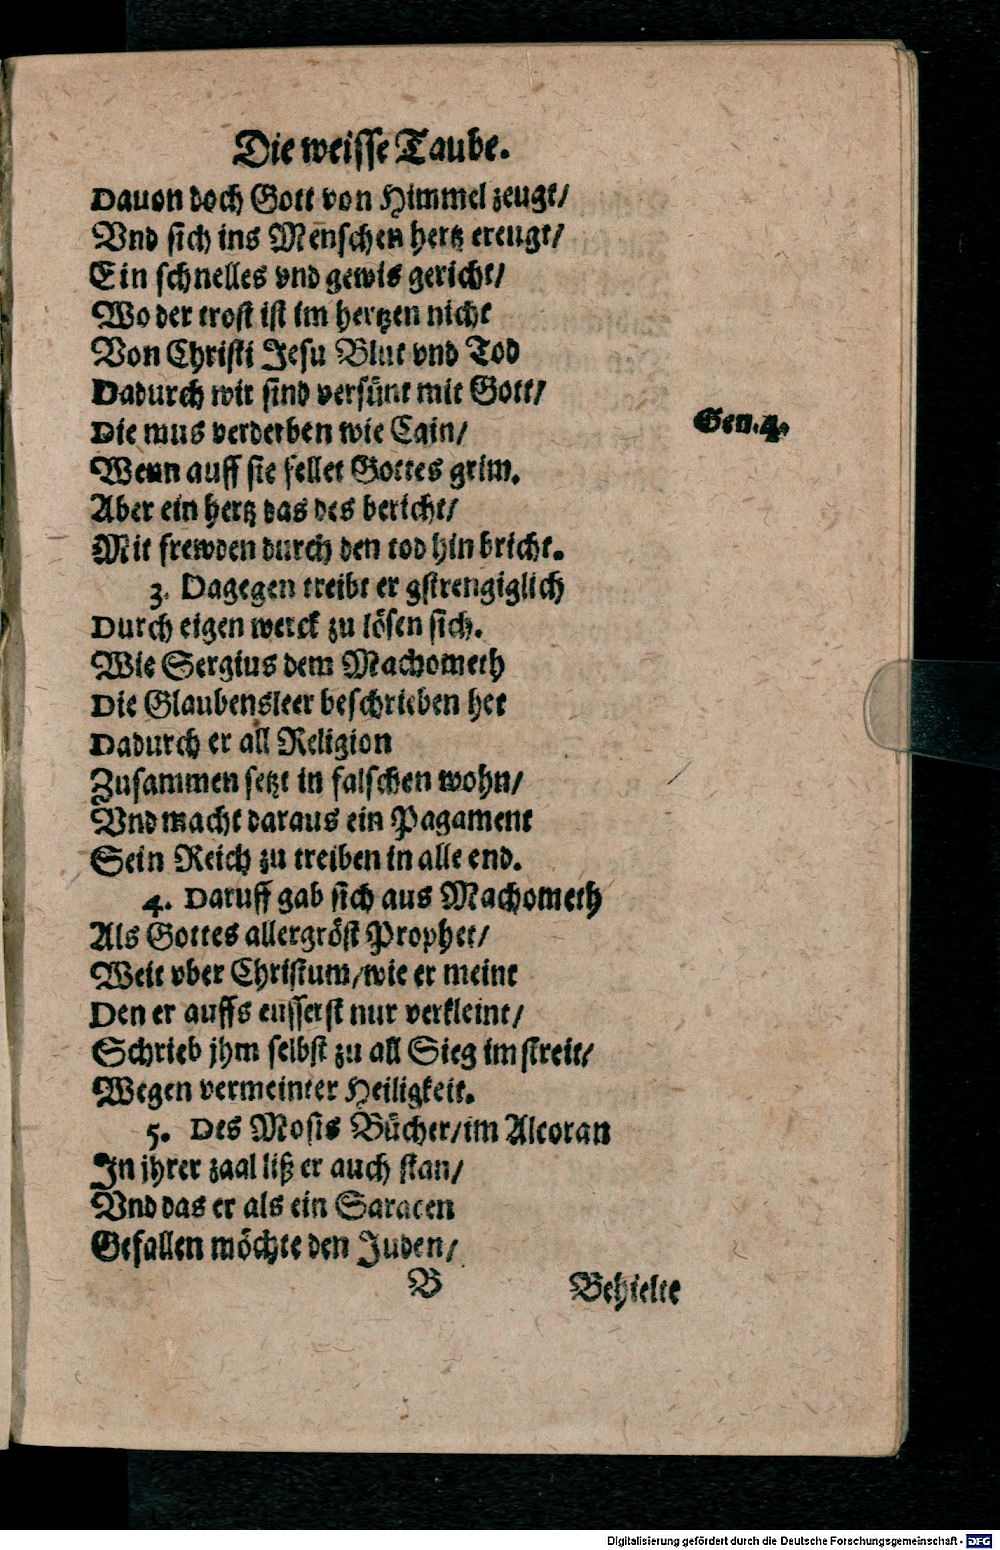 Die weisse Taube.
Dauon doch Gott von Himmel zeugt/
Vnd sich ins Menschen hertz ereugt/
Ein schnelles vnd gewis gericht/
Wo der trost ist im hertzen nicht
Von Christi Jesu Blut vnd Tod
Dadurch wir sind versünt mit Gott/
Die mus verderben wie Cain/
Gen. 4.
Wenn auff sie fellet Gottes grim.
Aber ein hertz das des bericht/
Mit frewden durch den tod hin bricht.
3. Dagegen treibt er gstrengiglich
Durch eigen werck zu lösen sich.
Wie Sergius dem Machometh
Die Glaubensleer beschrieben het
Dadurch er all Religion
Zusammen setzt in falschen wohn/
Vnd macht daraus ein Pagament
Sein Reich zu treiben in alle end.
4. Daruff gab sich aus Machometh
Als Gottes allergröst Prophet/
Weit vber Christum/wie er meint
Den er auffs eusserst nur verkleint/
Schrieb jhm selbst zu all Sieg im streit/
Wegen vermeinter Heiligkeit.
5. Des Mosis Bücher/im Alcoran
In jhrer zaal liß er auch stan/
Vnd das er als ein Saracen
Gefallen möchte den Juden/
B Behielte
Digitalisierung gefördert durch die Deutsche Forschungsgemeinschaft - DFG